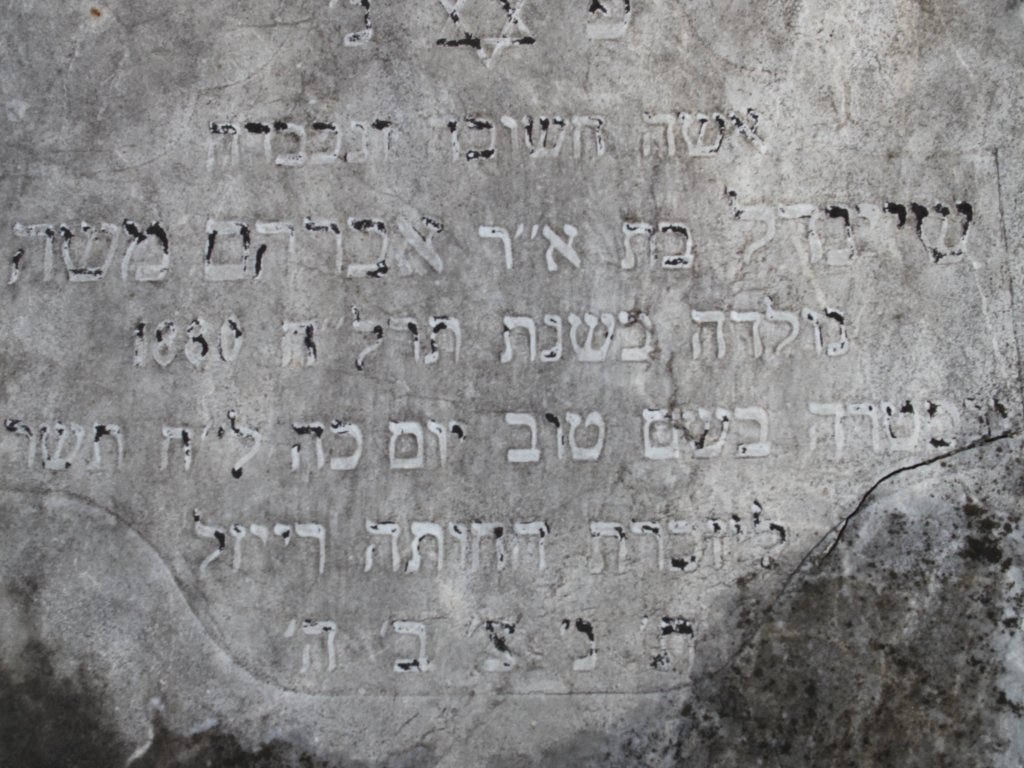 פ נ
אשה חשובה ונכבדה
שיינדל בת א״ר אברהם משה
נולדה בשנת תרל״ה 1880
נפטרה בשם טוב יום כה
החותה רייזל
ת׳ נ׳ צ׳ ב׳ ה׳